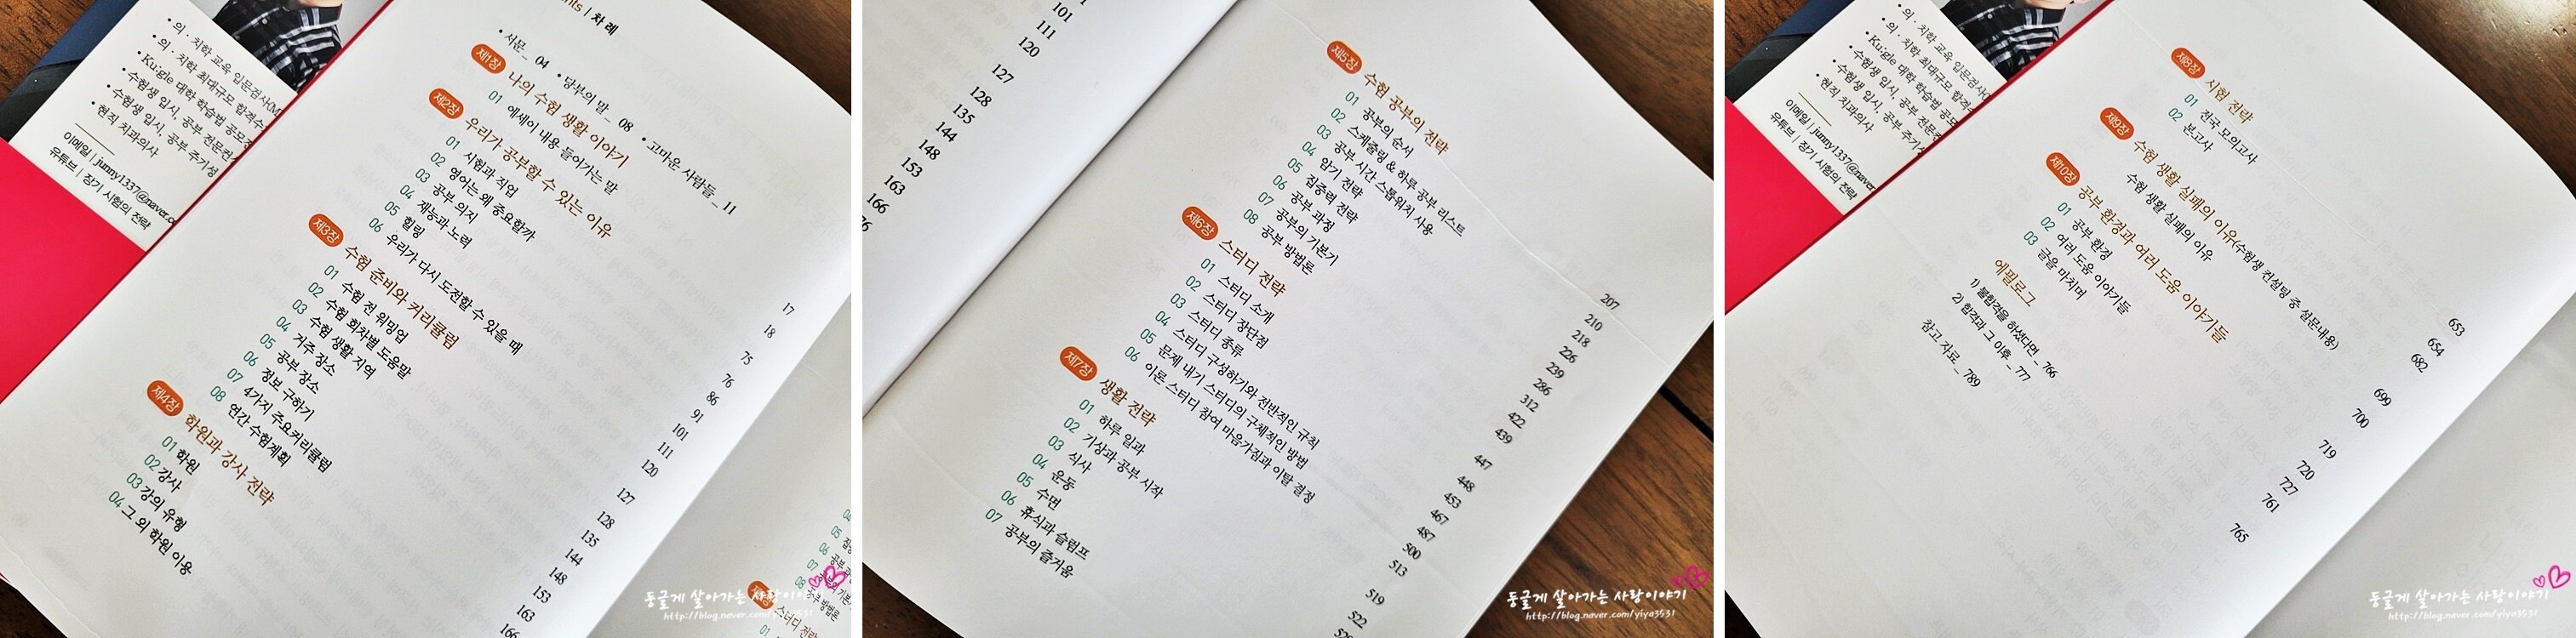 차례
• 서문 _ 04 • 당부의 말 _ 08 • 고마운 사람들 _ 11
제1장 나의 수험 생활 이야기 17
01 에세이 내용 들어가는 말 18
제2장 우리가 공부할 수 있는 이유 75
01 시험과 직업 76
02 영어는 왜 중요할까 86
03 공부 의지 91
04 재능과 노력 101
05 힐링 111
06 우리가 다시 도전할 수 있을 때 120
제3장 수험 준비와 커리큘럼 127
01 수험 전 워밍업 128
02 수험 회차별 도움말 135
03 수험 생활 지역 144
04 거주 장소 148
05 공부 장소 153
06 정보 구하기 163
07 4가지 주요커리큘럼 166
08 연간 수험계획
제4장 학원과 강사 전략
01 학원
02 강사
03 강의 유형
04 그 외 학원 이용
• 의·치학 교육 입문검사(M
• 의·치학 최대규모 합격수
• Ku:gle 대학 학습법 공모
• 수험생 입시, 공부 전문컨
• 수험생 입시, 공부 주기성
• 현직 치과의사
이메일 | junny1337@naver.c
유튜브 | 장기 시험의 전략
둥글게 살아가는 사랑이야기
http://blog.naver.com/yiyo3531
101
111
120
127
128
135
144
148
153
163
166
제5장 수험 공부의 전략 207
01 공부의 순서 210
02 스케줄링 & 하루 공부 리스트 218
03 공부 시간 스톱워치 사용 226
04 암기 전략 239
05 집중력 전략 286
06 공부 과정 312
07 공부의 기본기 422
08 공부 방법론 439
제6장 스터디 전략 447
01 스터디 소개 448
02 스터디 장단점 453
03 스터디 종류 467
04 스터디 구성하기와 전반적인 규칙 487
05 문제 내기 스터디의 구체적인 방법 500
06 이론 스터디 참여 마음가짐과 이탈 결정 513
제7장 생활 전략 519
01 하루 일과 522
02 기상과 공부 시작
03 식사
04 운동
05 수면
06 휴식과 슬럼프
07 공부의 즐거움
둥글게 살아가는 사랑이야기
http://blog.naver.com/yiyo3531
• 의·치학 교육 입문검사(
• 의·치학 최대규모 합격수
• Ku:gle 대학 학습법 공모
• 수험생 입시, 공부 전문
• 수험생 입시, 공부 주기
• 현직 치과의사
이메일 | junny1337@naver
유튜브 | 장기 시험의 전략
제8장 시험 전략 653
01 전국 모의고사 654
02 본고사 682
제9장 수험 생활 실패의 이유(수험생 컨설팅 중 설문내용) 699
수험 생활 실패의 이유 700
제10장 공부 환경과 여러 도움 이야기들 719
01 공부 환경 720
02 여러 도움 이야기들 727
03 글을 마치며 761
에필로그 765
1) 불합격을 하셨다면 _ 766
2) 합격과 그 이후 _ 777
참고 자료 _ 789
둥글게 살아가는 사랑이야기
http://blog.naver.com/yiyo3531